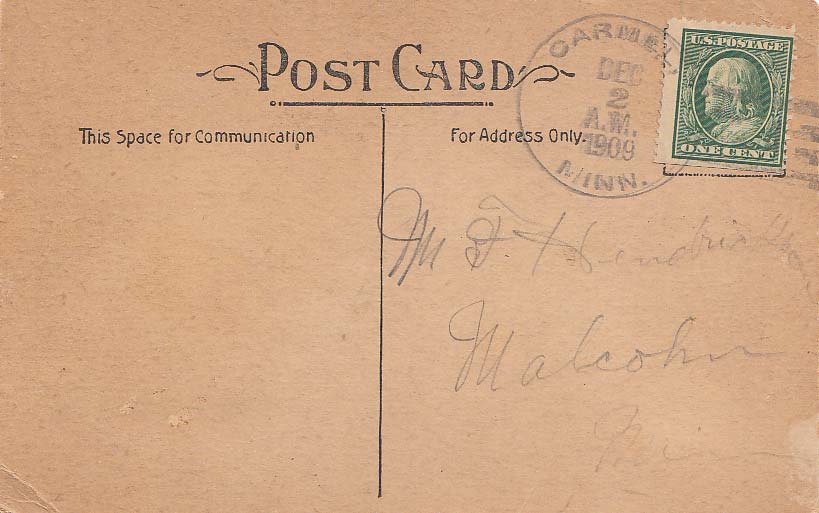 POST CARD
This Space for Communication
For Address Only.
CARMEL
DEC
2
A.M.
1909
MINN.
U.S. POSTAGE
ONE CENT
M F Hendrickson
Malcohm
Minn